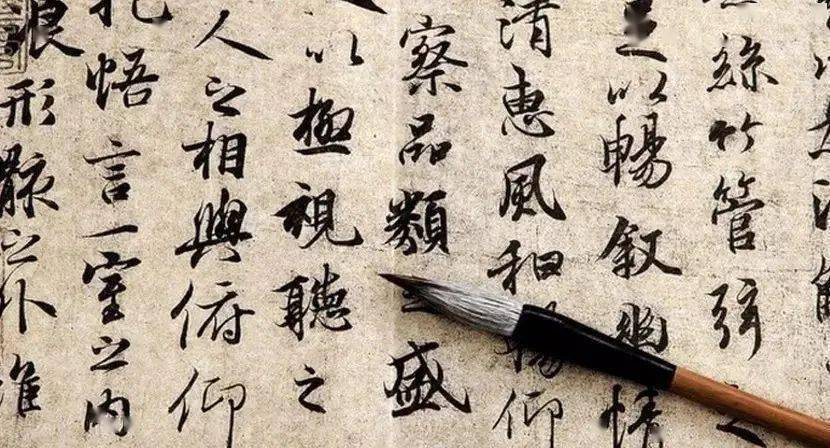 絲竹管弦之
足以暢叙幽情
清惠風和暢仰
察品類之盛
以極視聽之
人之相與俯仰
抱悟言一室之内
浪形骸之外雖